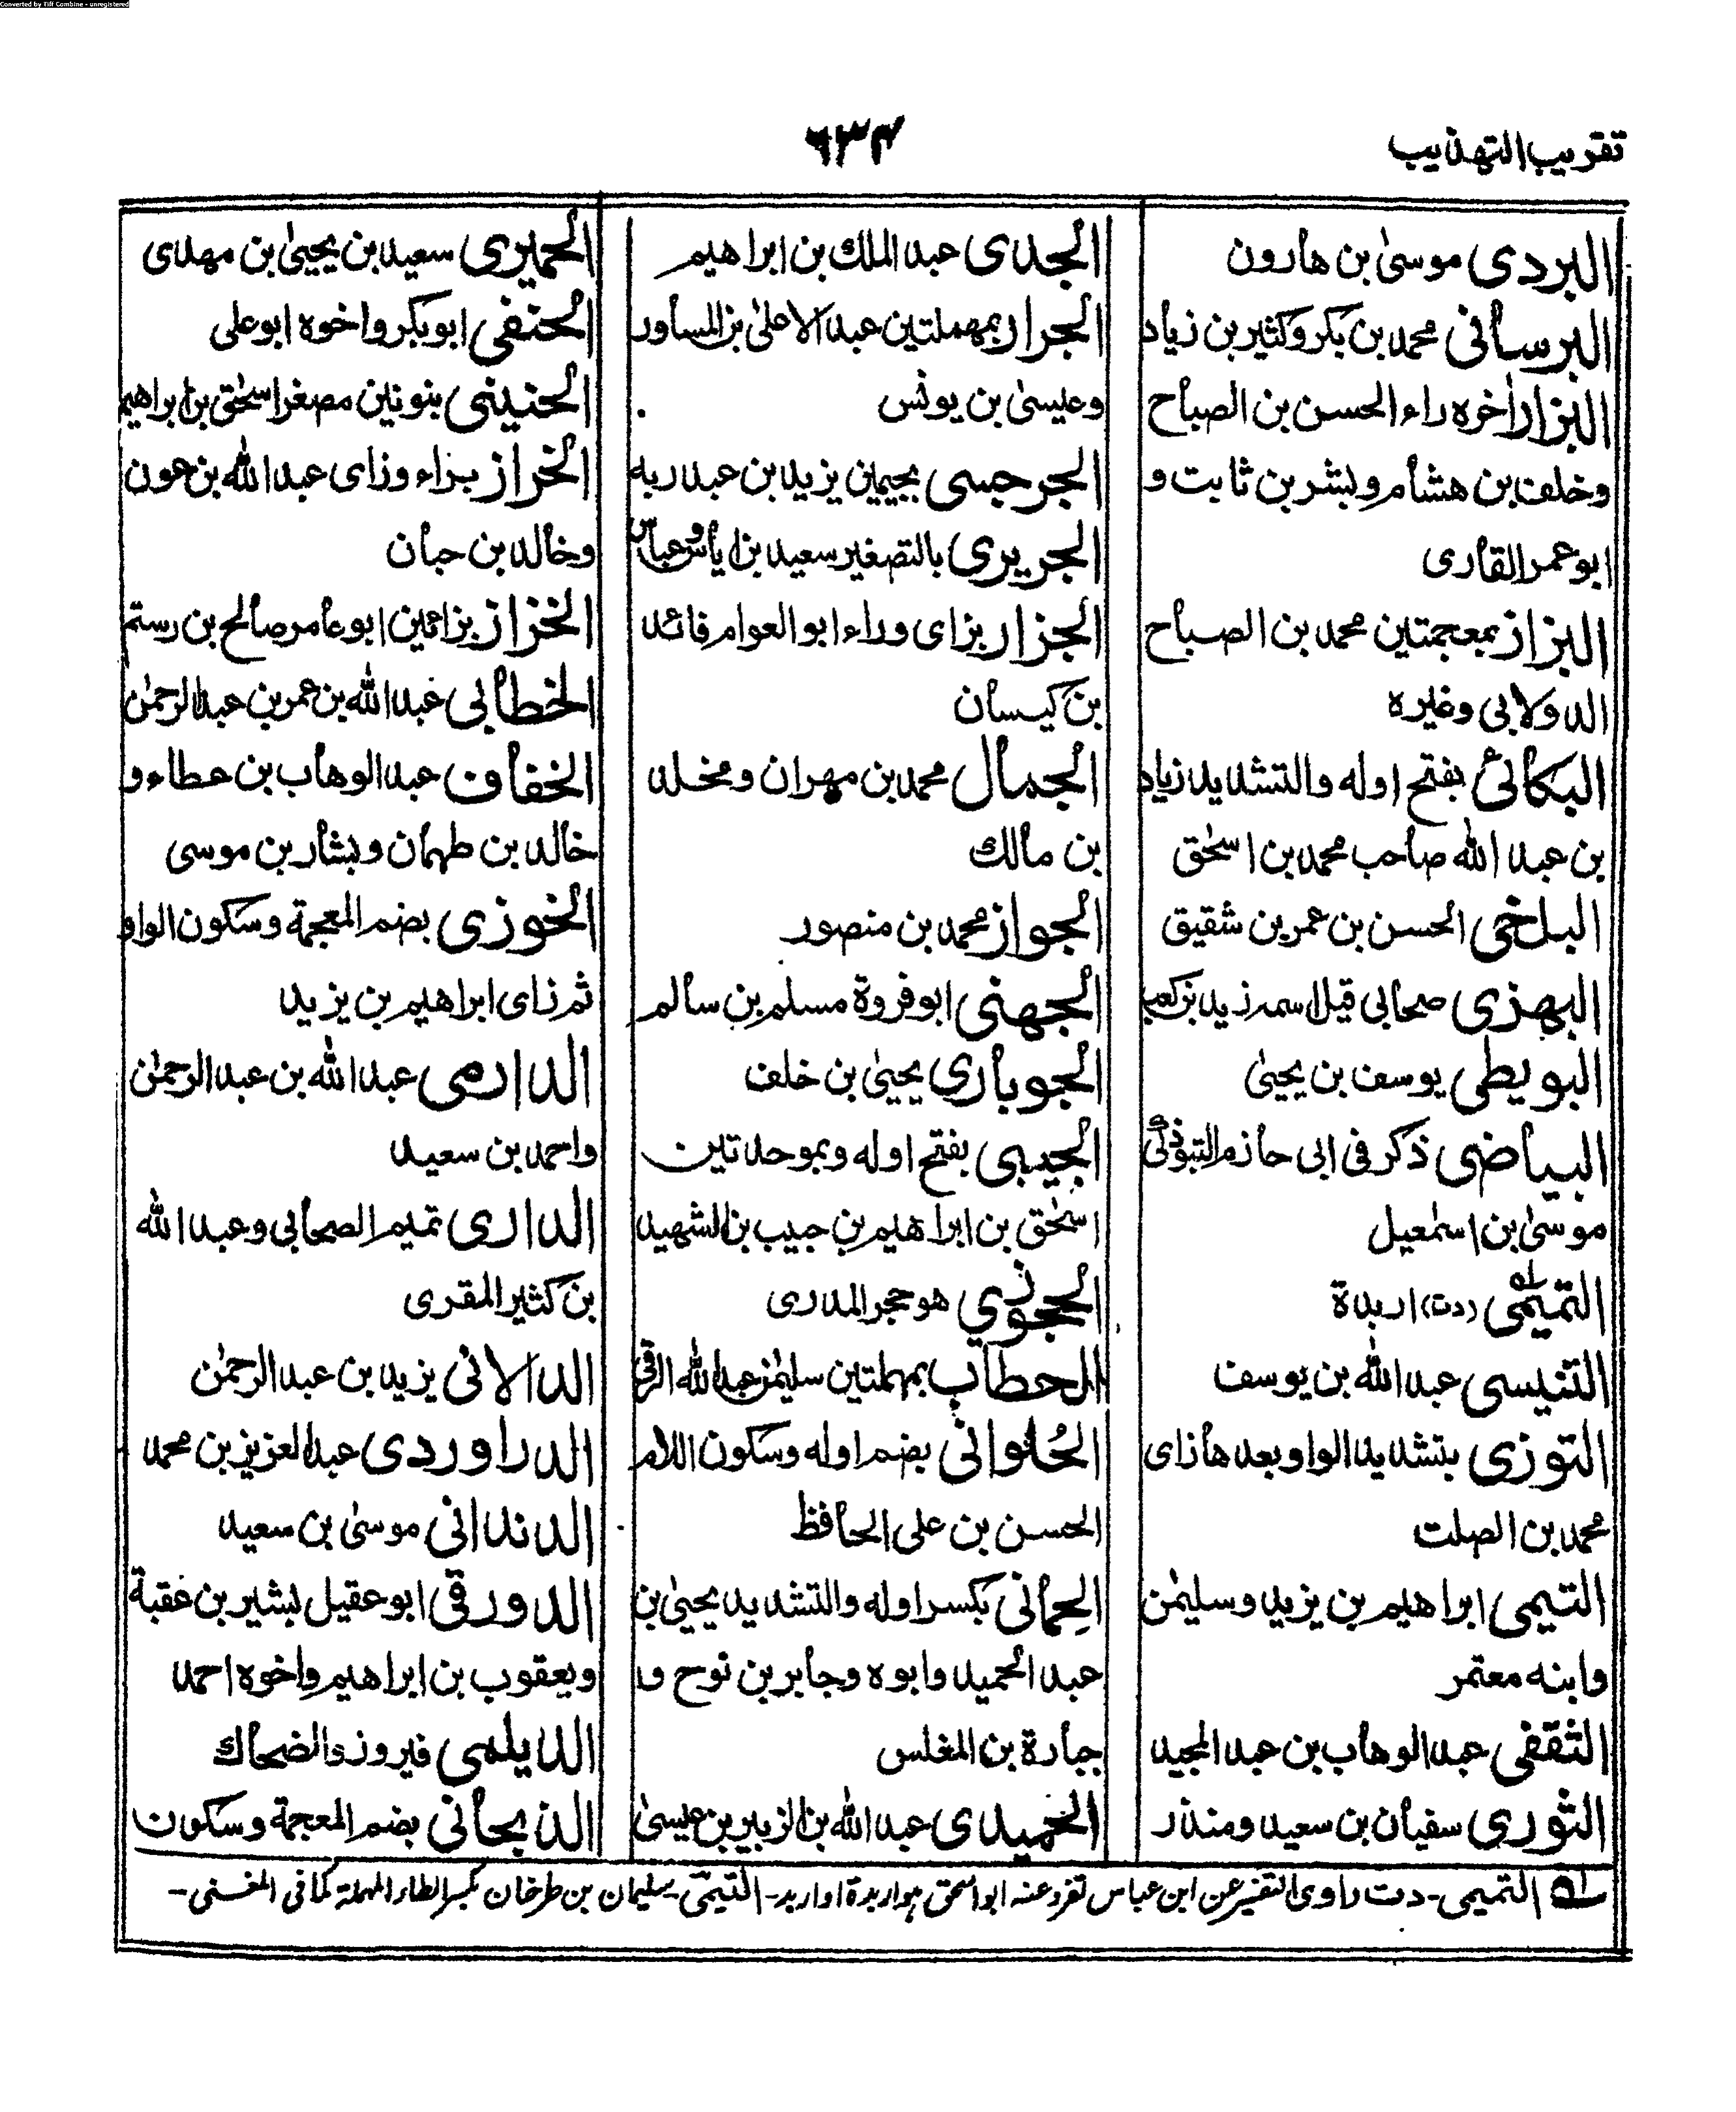 Converted by Tiff Combine - unregistered
تقريب التهذيب
٦٣٤
البردى موسىٰ بن هارون
البرسانى محمد بن بكر وكثير بن زياد
البزار اخره راء الحسن بن الصباح
وخلف بن هشام وبشر بن ثابت و
ابو عمر القارى
البزاز بمعجمتين محمد بن الصباح
الدولابى وغيره
البكائى بفتح اوله والتشديد زياد
بن عبد الله صاحب محمد بن اسحٰق
البلخى الحسن بن عمر بن شقيق
البهزى صحابى قيل اسمه زيد بن كعب
البويطى يوسف بن يحيىٰ
البياضى ذكر فى ابى حازم التبوذكى
موسىٰ بن اسمٰعيل
التميمى (دت) اربدة
التنيسى عبد الله بن يوسف
التوزى بتشديد الواو بعدها زاى
محمد بن الصلت
التيمى ابراهيم بن يزيد وسليمٰن
وابنه معتمر
الثقفى عبد الوهاب بن عبد المجيد
الثورى سفيان بن سعيد ومنذر
الجدى عبد الملك بن ابراهيم
الجرار بمهملتين عبد الاعلىٰ بن المساور
وعيسىٰ بن يونس
الجرجسى بجيمين يزيد بن عبد ربه
الجريرى بالتصغير سعيد بن اياس وعباس
الجزار بزاى وراء ابو العوام فائد
بن كيسان
الجمال محمد بن مهران ومخلد
بن مالك
الجواز محمد بن منصور
الجهنى ابو فروة مسلم بن سالم
الجوبارى يحيىٰ بن خلف
الجيبى بفتح اوله وبموحدتين
اسحٰق بن ابراهيم بن حبيب بن الشهيد
الحجورى هو حجر المدرى
الحطاب بمهملتين سليمٰن عبد الله الرقى
الحُلوانى بضم اوله وسكون اللام
الحسن بن على الحافظ
الحِمانى بكسر اوله والتشديد يحيىٰ بن
عبد الحميد وابوه وجابر بن نوح و
جبارة بن المغلس
الحميدى عبد الله بن الزبير بن عيسىٰ
الحميرى سعيد بن يحيىٰ بن مهدى
الحنفى ابو بكر واخوه ابو على
الحنينى بنونين مصغرا اسحٰق بن ابراهيم
الخراز براء وزاى عبد الله بن عون
وخالد بن حبان
الخزاز بزائين ابو عامر صالح بن رستم
الخطابى عبد الله بن عمر بن عبد الرحمٰن
الخفاف عبد الوهاب بن عطاء و
خالد بن طهمان وبشار بن موسى
الخوزى بضم المعجمة وسكون الواو
ثم زاى ابراهيم بن يزيد
الدارمى عبد الله بن عبد الرحمٰن
واحمد بن سعيد
الدارى تميم الصحابى وعبد الله
بن كثير المقرى
الدالانى يزيد بن عبد الرحمٰن
الدراوردى عبد العزيز بن محمد
الدندانى موسىٰ بن سعيد
الدورقى ابو عقيل بشير بن عقبة
ويعقوب بن ابراهيم واخوه احمد
الديلمى فيروز والضحاك
الذبحانى بضم المعجمة وسكون
له التميمى - دت راوى التفسير عن ابن عباس تفرد عنه ابو اسحق هو اربدة او اربد - التيمى - سليمان بن طرخان بكسر الطاء المهملة كما فى المغنى -